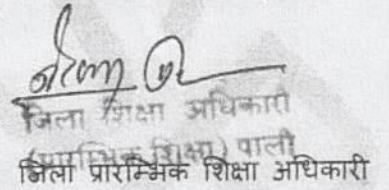 जिला शिक्षा अधिकारी
(प्रारम्भिक शिक्षा) पाली
जिला प्रारम्भिक शिक्षा अधिकारी